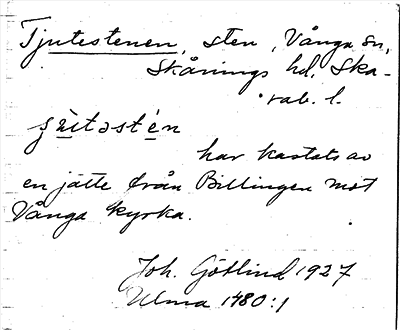 Tjutestenen, sten, Vånga sn,
Skånings hd, Ska-
rab. l.
har kastats av
en jätte från Billingen mot
Vånga kyrka.
Joh. Götlind 1927
Ulma 1480:1